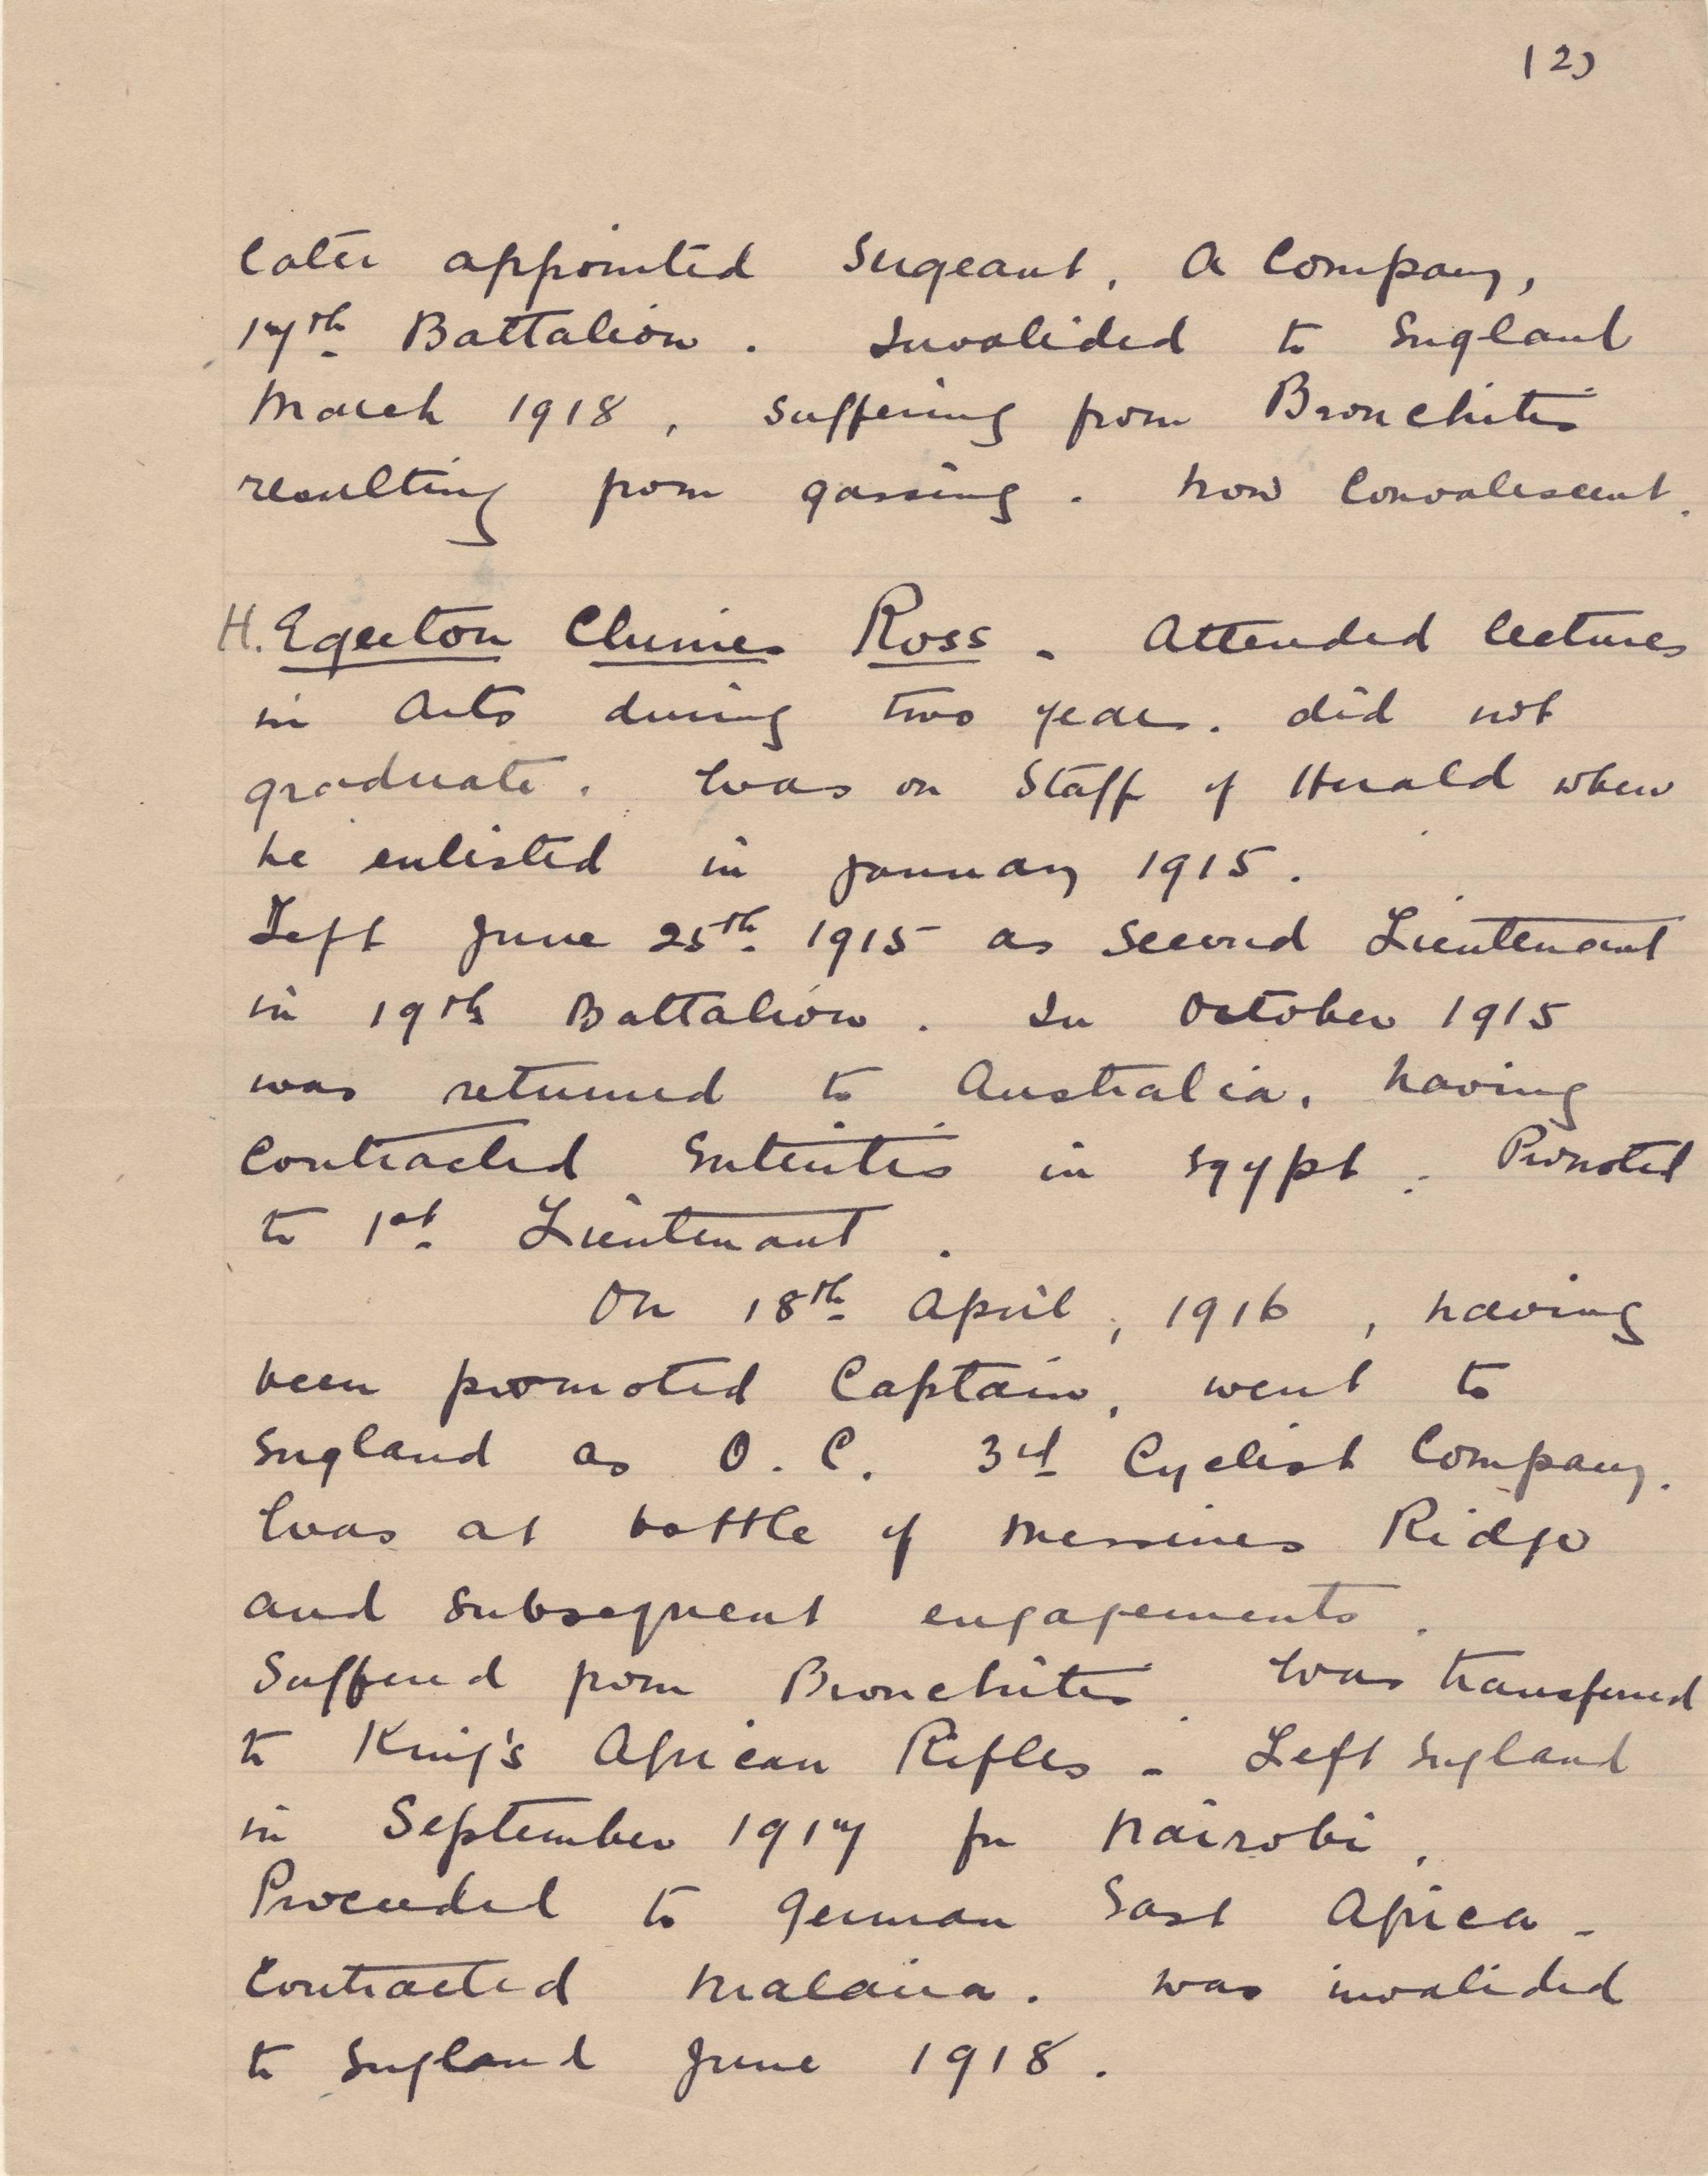 (2)
later appointed Sergeant, A Company,
17th Battalion. Invalided to England
March 1918, suffering from Bronchitis
resulting from gassing. Now Convalescent.
H. Egerton Clunies Ross - Attended lectures
in Arts during two years. did not
graduate. Was on Staff of Herald when
he enlisted in January 1915.
Left June 25th 1915 as Second Lieutenant
in 19th Battalion. In October 1915
was returned to Australia, having
contracted Enteritis in Egypt. Promoted
to 1st Lieutenant.
On 18th April, 1916, having
been promoted Captain, went to
England as O. C. 3rd Cyclist Company.
Was at battle of Messines Ridge
and subsequent engagements.
Suffered from Bronchitis. Was transferred
to King's African Rifles - Left England
in September 1917 for Nairobi.
Proceeded to German East Africa -
Contracted Malaria. was invalided
to England June 1918.